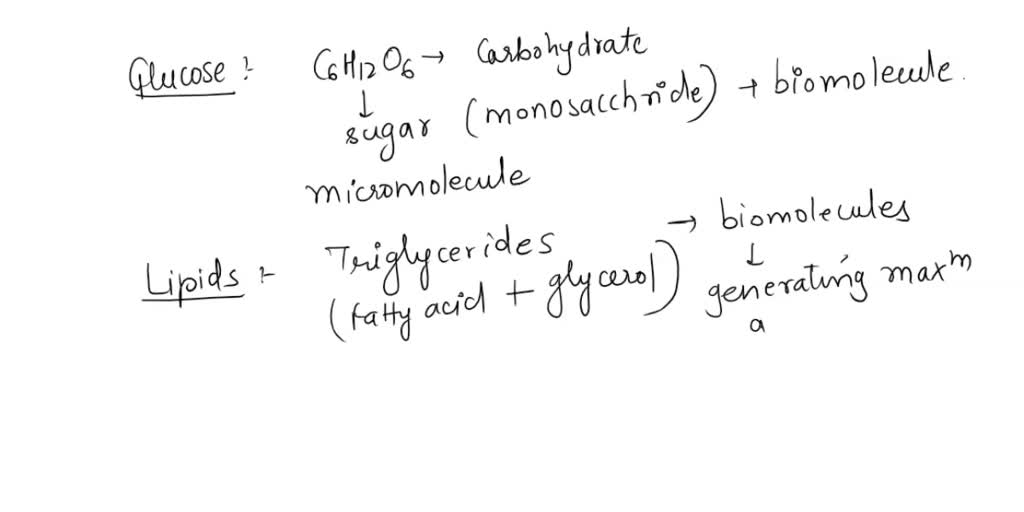 Glucose :- C6H12O6 → Carbohydrate
↓
sugar (monosacchride) → biomolecule.
micromolecule
Lipids :- Triglycerides → biomolecules
↓
(fatty acid + glycerol) generating maxm
a